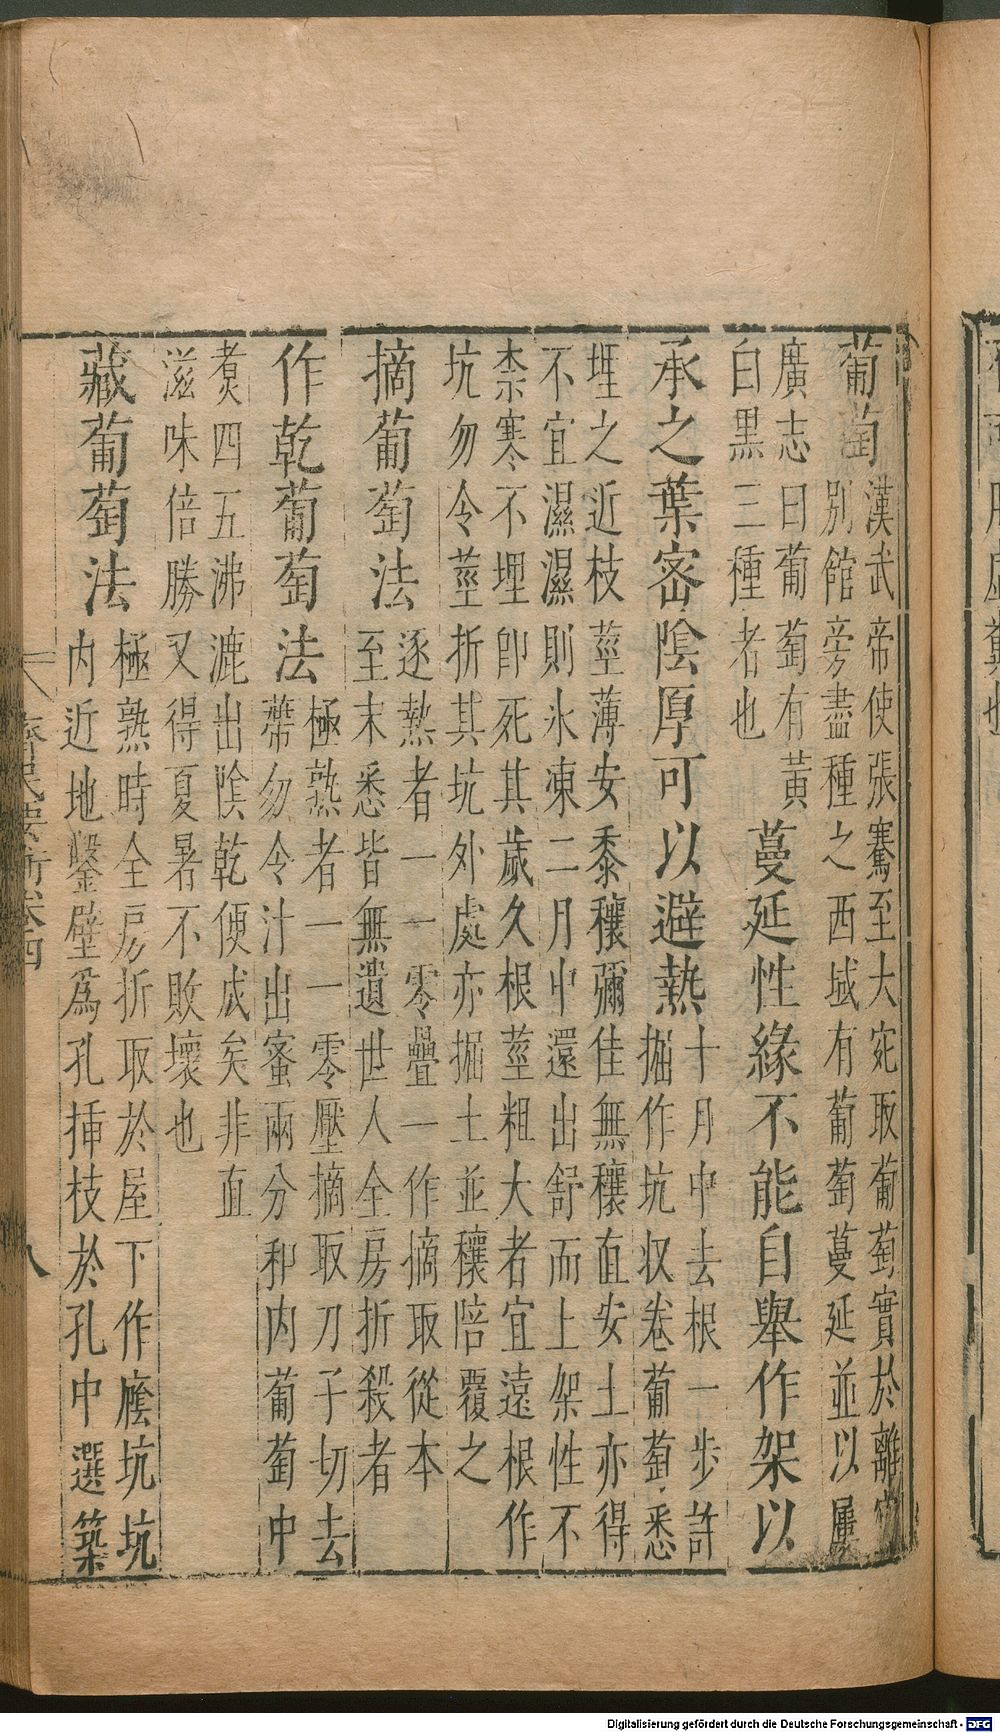 葡萄
漢武帝使張騫至大宛取葡萄實於離宮
別館旁盡種之西域有葡萄蔓延並以
廣志曰葡萄有黃
白黑三種者也
蔓延性緣不能自舉作架以
承之葉密陰厚可以避熱
十月中去根一步許
掘作坑収卷葡萄悉
埋之近枝莖薄安黍穰彌佳無穰直安土亦得
不宜濕濕則氷凍二月中還出舒而上架性不
柰寒不埋卽死其歲久根莖粗大者宜遠根作
坑勿令莖折其坑外處亦掘土並穰陪覆之
摘葡萄法
逐熟者一一零疊一作摘取從本
至末悉皆無遺世人全房折殺者
作乾葡萄法
極熟者一一零壓摘取刀子切去
蔕勿令汁出蜜兩分和内葡萄中
煮四五沸漉出陰乾便成矣非直
滋味倍勝又得夏暑不敗壞也
藏葡萄法
極熟時全房折取於屋下作廕坑坑
内近地鑿壁爲孔揷枝於孔中選築
齊民要術卷四
八
Digitalisierung gefördert durch die Deutsche Forschungsgemeinschaft - DFG